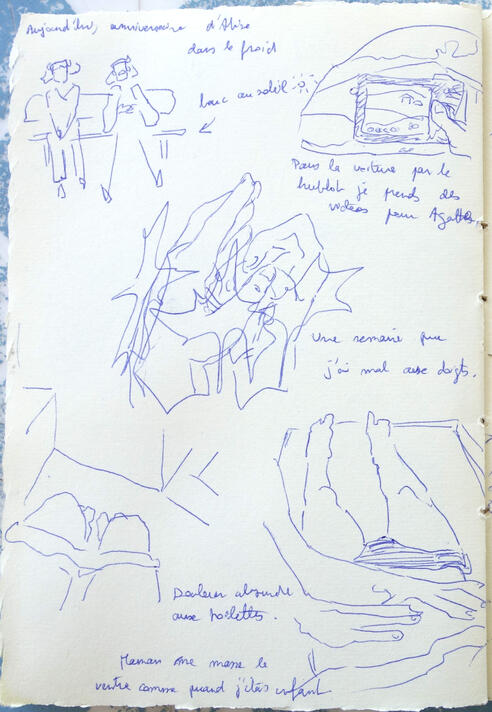 Aujourd'hui, anniversaire d'Alise
dans le froid
banc au soleil
Dans la voiture par le
hublot je prends des
vidéos pour Agathe.
Une semaine que
j'ai mal aux doigts.
Douleur absurde
aux toilettes.
Maman me masse le
ventre comme quand j'étais enfant